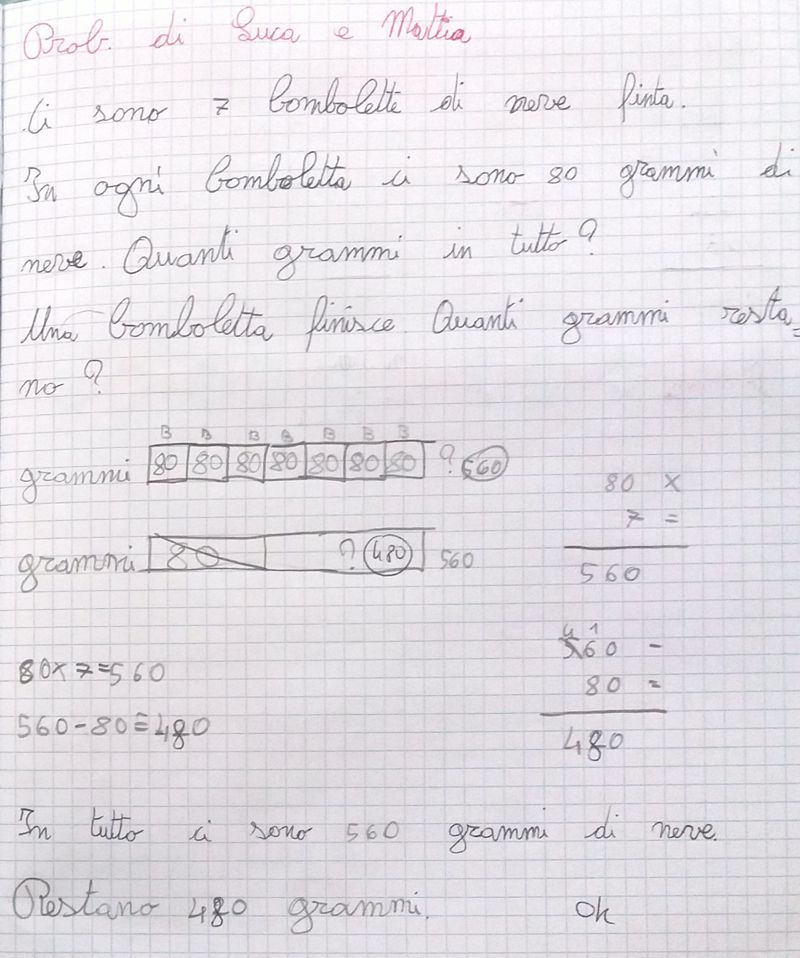 Prob. di Luca e Mattia
Ci sono 7 bombolette di neve finta.
In ogni bomboletta ci sono 80 grammi di
neve. Quanti grammi in tutto?
Una bomboletta finisce. Quanti grammi resta_
no?
B B B B B B B
grammi 80 80 80 80 80 80 80 ? 560
80 x
7 =
560
grammi 80 ? 480 560
4 1
560 -
80 =
480
80x7=560
560-80=480
In tutto ci sono 560 grammi di neve.
Restano 480 grammi. Ok